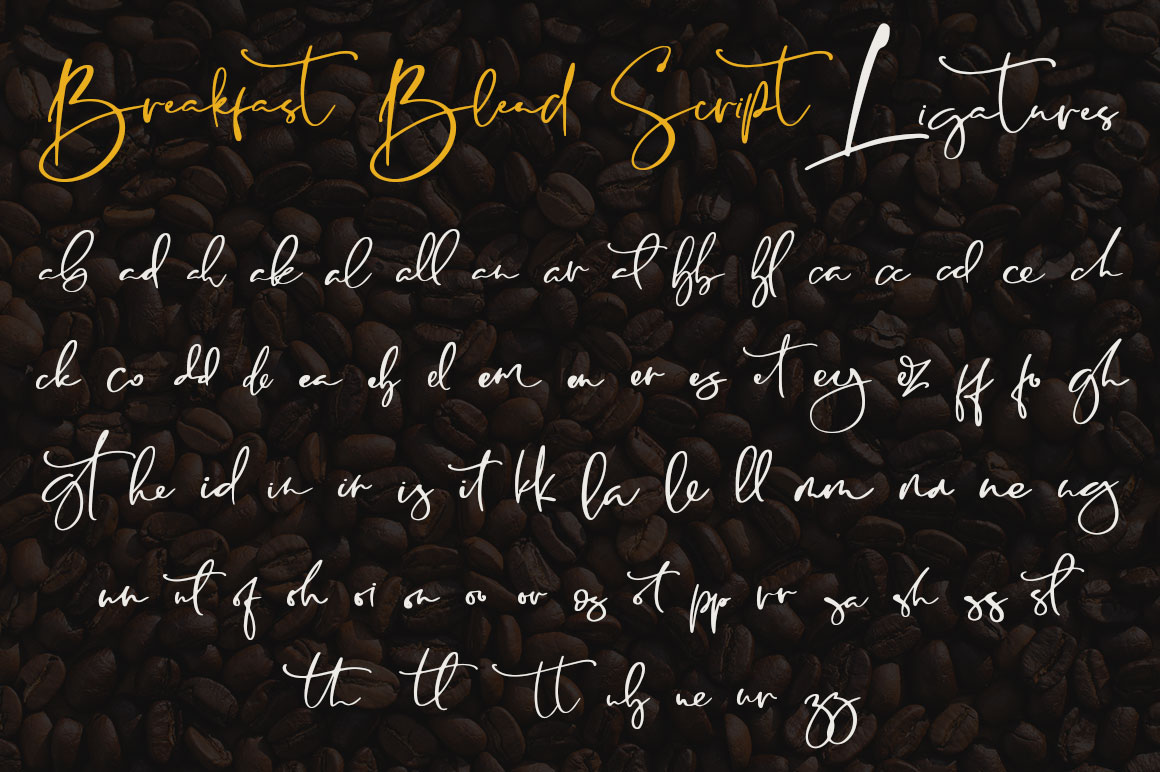 Breakfast Blend Script Ligatures
ab ad ah ak al all an ar at bb bl ca cc cd ce ch
ck co dd de ea eb el em en er es et ey ez ff fo gh
gt he id in ir is it kk la le ll mm na ne ng
nn nt of oh oi on oo or os ot pp rr sa sh ss st
th tl tt ub ue ur zz